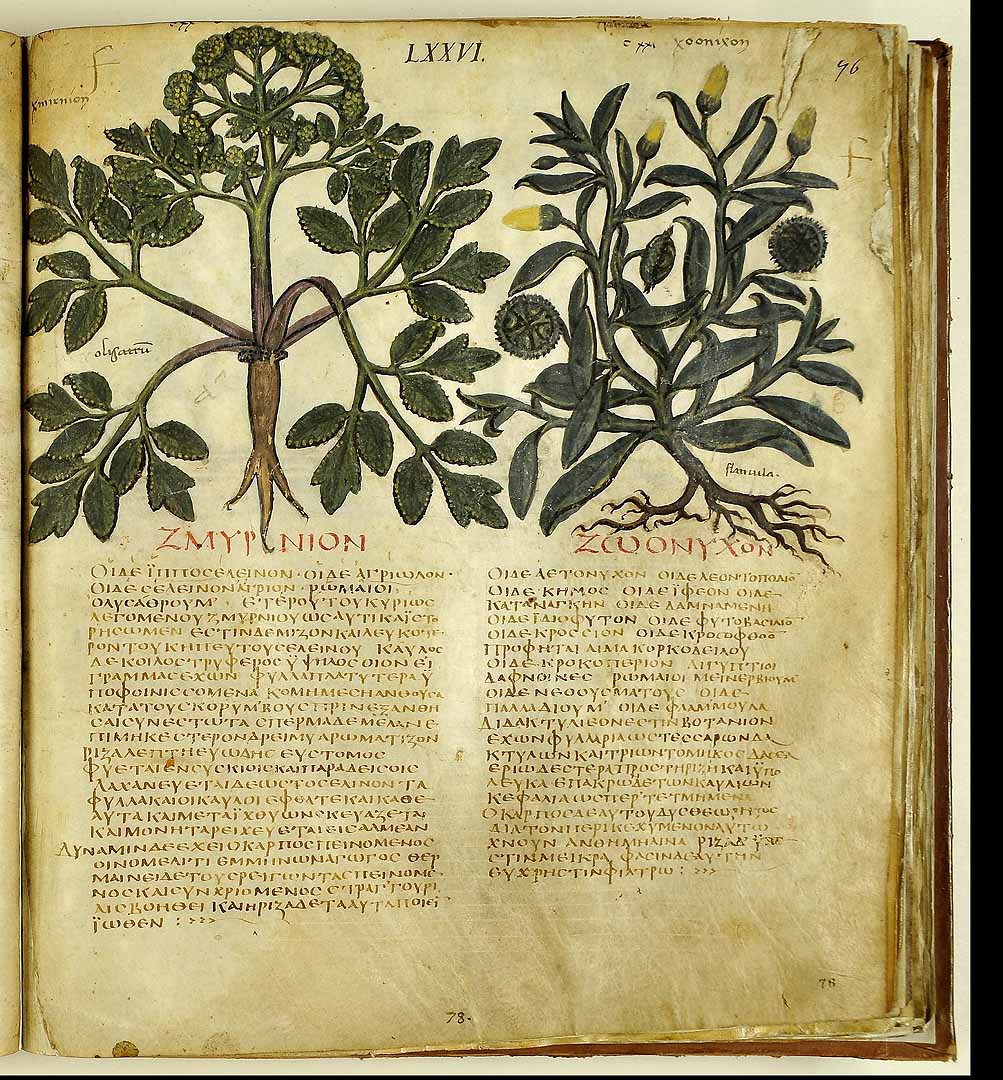 LXXVI.
76
χοονιχον
olisatrū
flamula.
ΖΜΥΡΝΙΟΝ
ΟΙΔΕ ΪΠΠΟϹΕΛΕΙΝΟΝ · ΟΙΔΕ ΑΓΡΙΩΛΟΝ ·
ΟΙΔΕ ϹΕΛΕΙΝΟΝ ΑΓΡΙΟΝ · ΡΩΜΑΙΟΙ
ΟΛΥϹΑΘΡΟΥΜ · ΕΤΕΡΟΥ ΤΟΥ ΚΥΡΙΩϹ
ΛΕΓΟΜΕΝΟΥ ΖΜΥΡΝΙΟΥ ΩϹ ΑΥΤΙΚΑ ΪϹΤΟ
ΡΗϹΩΜΕΝ ΕϹΤΙΝ ΔΕ ΜΙΖΟΝ ΚΑΙ ΛΕΥΚΟΤΕ
ΡΟΝ ΤΟΥ ΚΗΠΕΥΤΟΥ ϹΕΛΕΙΝΟΥ ΚΑΥΛΟϹ
ΔΕ ΚΟΙΛΟϹ ΤΡΥΦΕΡΟϹ ΫΨΗΛΟϹ ΟΙΟΝ ΕΙ
ΓΡΑΜΜΑϹ ΕΧΩΝ ΦΥΛΛΑ ΠΛΑΤΥΤΕΡΑ Ϋ
ΠΟΦΟΙΝΙϹϹΟΜΕΝΑ ΚΟΜΗ ΜΕϹΗ ΑΝΘΟΥϹΑ
ΚΑΤΑ ΤΟΥϹ ΚΟΡΥΜΒΟΥϹ ΠΡΙΝ ΕΞΑΝΘΗ
ϹΑΙ ϹΥΝΕϹΤΩΤΑ ϹΠΕΡΜΑ ΔΕ ΜΕΛΑΝ Ε
ΠΙΜΗΚΕϹ ΤΕΡΟΝ ΔΡΕΙΜΥ ΑΡΩΜΑΤΙΖΟΝ
ΡΙΖΑ ΛΕΠΤΗ ΕΥΩΔΗϹ ΕΥϹΤΟΜΟϹ
ΦΥΕΤΑΙ ΕΝ ϹΥϹΚΙΟΙϹ ΚΑΙ ΠΑΡΑΔΕΙϹΟΙϹ
ΛΑΧΑΝΕΥΕΤΑΙ ΔΕ ΩϹ ΤΟ ϹΕΛΙΝΟΝ ΤΑ
ΦΥΛΛΑ ΚΑΙ ΟΙ ΚΑΥΛΟΙ ΕΦΘΑΙ ΤΕ ΚΑΙ ΚΑΘΕ
ΑΥΤΑ ΚΑΙ ΜΕΤΑ ΪΧΘΥΩΝ ϹΚΕΥΑΖΕΤΑΙ
ΚΑΙ ΜΟΝΗ ΤΑΡΕΙΧΕΥΕΤΑΙ ΕΙϹ ΑΛΜΕΑΝ
ΔΥΝΑΜΙΝ ΔΕ ΕΧΕΙ Ο ΚΑΡΠΟϹ ΠΕΙΝΟΜΕΝΟϹ
ΟΙΝΟΜΕΛΙΤΙ ΕΜΜΗΝΩΝ ΑΓΩΓΟϹ ΘΕΡ
ΜΑΙΝΕΙ ΔΕ ΤΟΥϹ ΡΕΙΓΩΝΤΑϹ ΠΕΙΝΟΜΕ
ΝΟϹ ΚΑΙ ϹΥΝΧΡΙΟΜΕΝΟϹ ϹΤΡΑΓΓΟΥΡΙ
ΑΙϹ ΒΟΗΘΕΙ ΚΑΙ Η ΡΙΖΑ ΔΕ ΤΑ ΑΥΤΑ ΠΟΙΕΙ
ΪΩΘΕΝ :
ΖΩΟΝΥΧΟΝ
ΟΙΔΕ ΑΕΤΟΝΥΧΟΝ ΟΙΔΕ ΛΕΟΝΤΟΠΟΔΙΟ
ΟΙΔΕ ΚΗΜΟϹ ΟΙΔΕ ΪΦΕΟΝ ΟΙΔΕ
ΚΑΤΑΝΑΓΚΗΝ ΟΙΔΕ ΔΑΜΝΑΜΕΝΗ
ΟΙΔΕ ΪΔΙΟΦΥΤΟΝ ΟΙΔΕ ΦΥΤΟΒΑϹΙΛΙΟ
ΟΙΔΕ ΚΡΟϹϹΙΟΝ ΟΙΔΕ
ΠΡΟΦΗΤΑΙ ΑΙΜΑ ΚΟΡΚΟΔΕΙΛΟΥ
ΟΙΔΕ ΚΡΟΚΟΠΕΡΙΟΝ ΑΙΓΥΠΤΙΟΙ
ΔΑΦΝΟΙΝΕϹ ΡΩΜΑΙΟΙ ΜΕΙΝΕΡΒΙΟΥΜ
ΟΙΔΕ ΝΕΟΘΟΥϹΜΑΤΟΥϹ ΟΙΔΕ
ΠΑΛΛΑΔΙΟΥΜ ΟΙΔΕ ΦΛΑΜΜΟΥΛΑ
ΔΙΔΑΚΤΥΛΙΕΟΝ ΕϹΤΙΝ ΒΟΤΑΝΙΟΝ
ΕΧΩΝ ΦΥΛΛΑΡΙΑ ΩϹ ΤΕϹϹΑΡΩΝ ΔΑ
ΚΤΥΛΩΝ ΚΑΙ ΤΡΙΩΝ ΤΟ ΜΗΚΟϹ ΔΑϹΕΑ
ΕΡΙΩΔΕϹΤΕΡΑ ΠΡΟϹ ΤΗ ΡΙΖΗ ΚΑΙ ΫΠΟ
ΛΕΥΚΑ ΕΠ ΑΚΡΩ ΔΕ ΤΩΝ ΚΑΥΛΙΩΝ
ΚΕΦΑΛΙΑ ΩϹΠΕΡ ΤΕΤΜΗΜΕΝΑ
Ο ΚΑΡΠΟϹ ΔΕ ΑΥΤΟΥ ΔΥϹΘΕΩΡΗΤΟϹ
ΔΙΑ ΤΟ ΠΕΡΙΚΕΧΥΜΕΝΟΝ ΑΥΤΩ
ΧΝΟΥΝ ΡΙΖΑ Δ
ϹΤΙΝ ΜΕΙΚΡΑ
ΕΥΧΡΗϹΤΙΝ ΦΙΛΤΡΩ :
76
78.